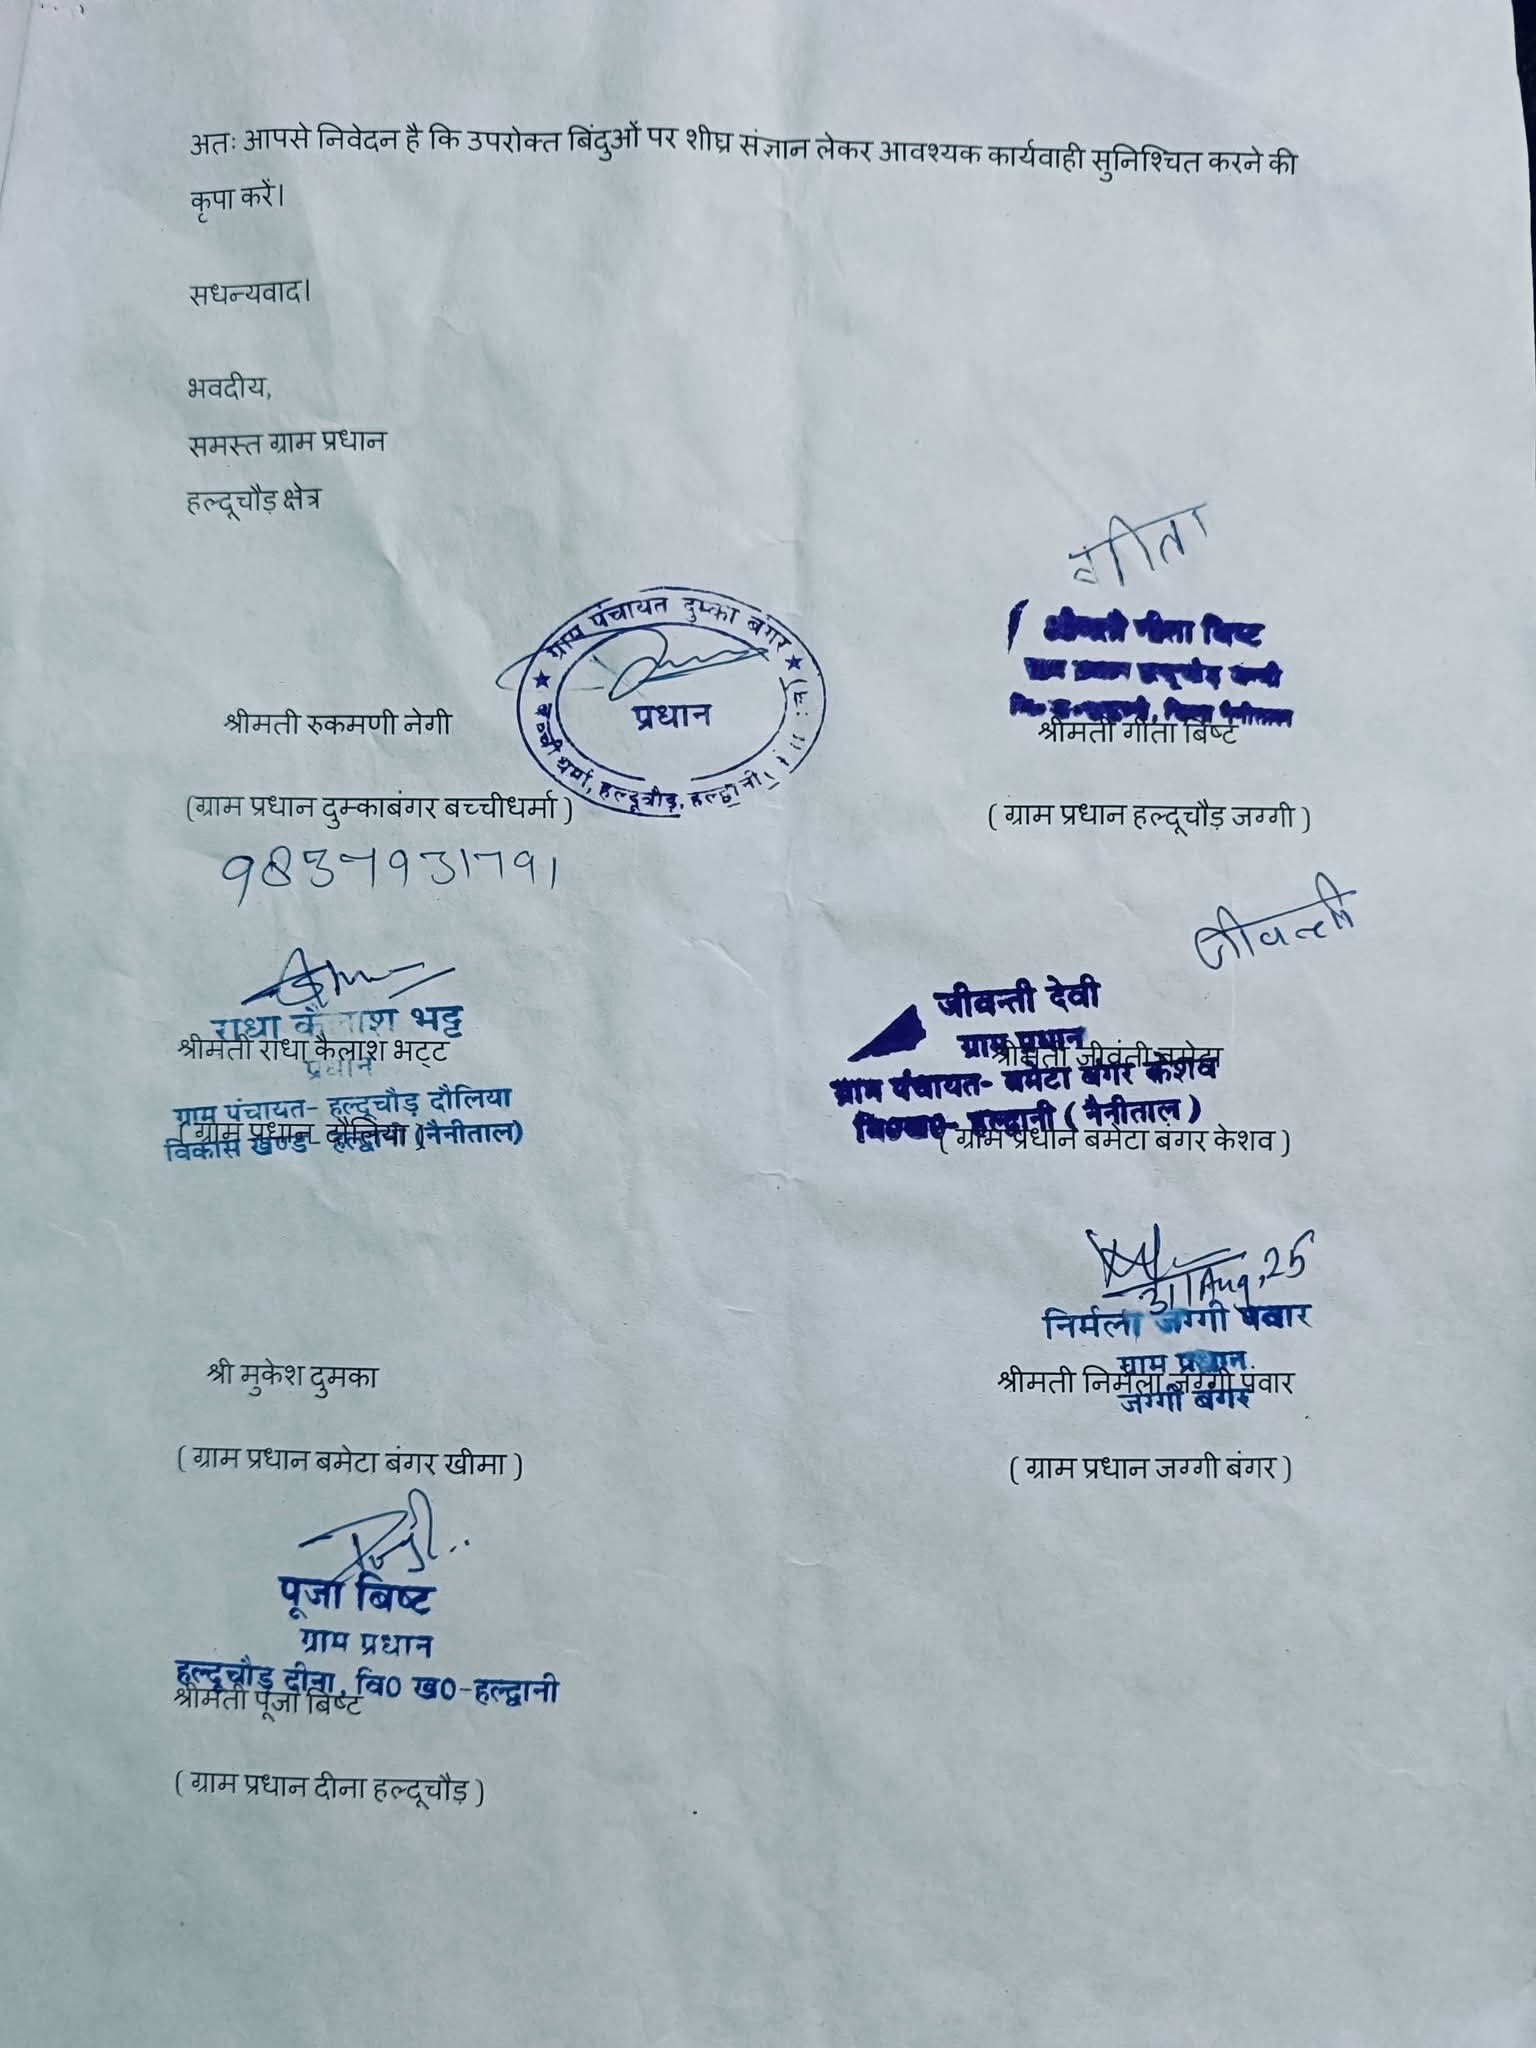 अतः आपसे निवेदन है कि उपरोक्त बिंदुओं पर शीघ्र संज्ञान लेकर आवश्यक कार्यवाही सुनिश्चित करने की
कृपा करें।
सधन्यवाद।
भवदीय,
समस्त ग्राम प्रधान
हल्दूचौड़ क्षेत्र
ग्राम पंचायत दुम्का बंगर
प्रधान
बच्ची धर्मा, हल्दूचौड़, हल्द्वानी
श्रीमती रुकमणी नेगी
(ग्राम प्रधान दुम्काबंगर बच्चीधर्मा )
9837931791
गीता
श्रीमती गीता बिष्ट
श्रीमती गीता बिष्ट
( ग्राम प्रधान हल्दूचौड़ जग्गी )
राधा कैलाश भट्ट
श्रीमती राधा कैलाश भट्ट
प्रधान
ग्राम पंचायत- हल्दूचौड़ दौलिया
( ग्राम प्रधान दौलिया
विकास खण्ड- हल्द्वानी (नैनीताल)
जीवन्ती
जीवन्ती देवी
ग्राम प्रधान
श्रीमती जीवंती बमेटा
ग्राम पंचायत- बमेटा बंगर केशव
वि०ख०- हल्द्वानी ( नैनीताल )
( ग्राम प्रधान बमेटा बंगर केशव )
श्री मुकेश दुमका
( ग्राम प्रधान बमेटा बंगर खीमा )
31 Aug, 25
निर्मला जग्गी पवार
ग्राम प्रधान
श्रीमती निर्मला जग्गी पंवार
जग्गी बंगर
( ग्राम प्रधान जग्गी बंगर )
पूजा बिष्ट
ग्राम प्रधान
हल्दूचौड़ दीना, वि0 ख0-हल्द्वानी
श्रीमती पूजा बिष्ट
( ग्राम प्रधान दीना हल्दूचौड़ )